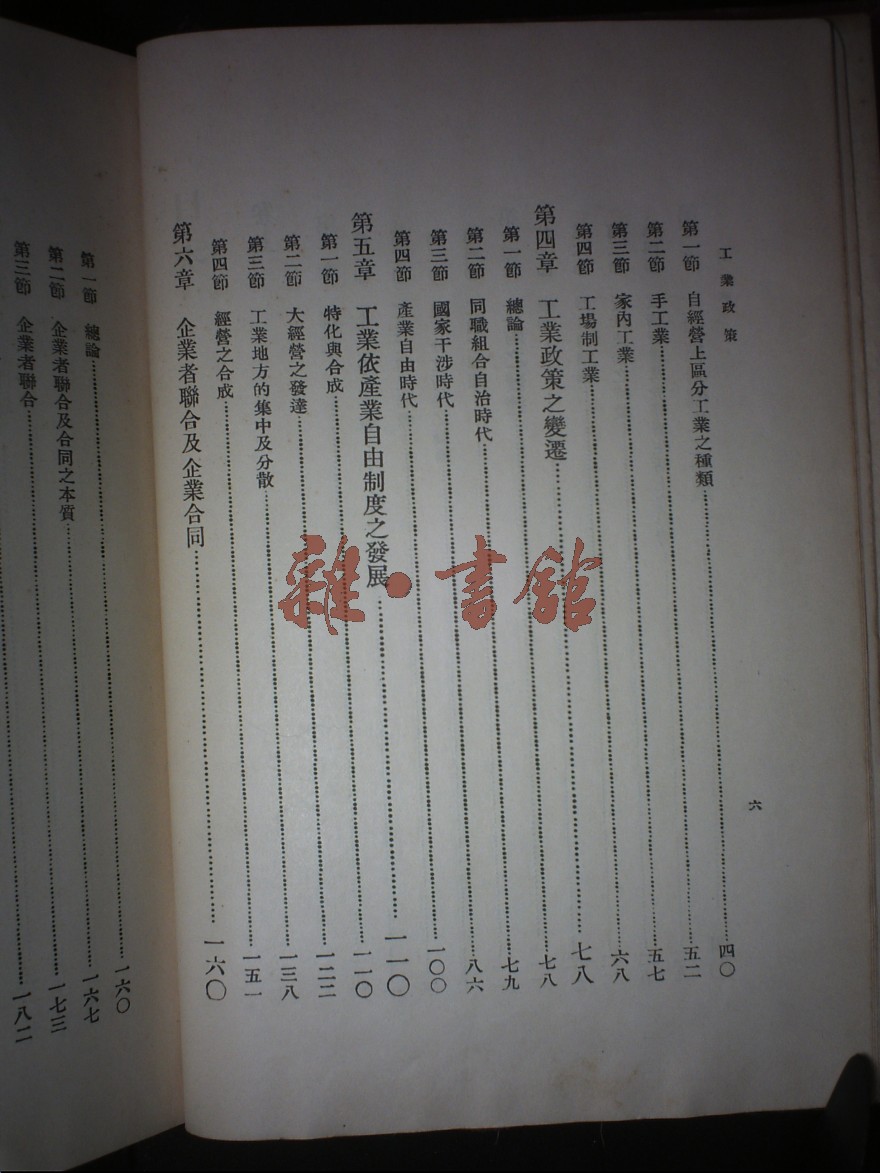 工業政策
六
第一節 自經營上區分工業之種類……四〇
第二節 手工業……五二
第三節 家內工業……五七
第四節 工場制工業……六八
第四章 工業政策之變遷……七八
第一節 總論……七八
第二節 同職組合自治時代……七九
第三節 國家干涉時代……八六
第四節 產業自由時代……一〇〇
第五章 工業依產業自由制度之發展……一一〇
第一節 特化與合成……一一〇
第二節 大經營之發達……一二二
第三節 工業地方的集中及分散……一三八
第四節 經營之合成……一五一
第六章 企業者聯合及企業合同……一六〇
第一節 總論……一六〇
第二節 企業者聯合及合同之本質……一六七
第三節 企業者聯合……一七三
一八二
雜·書館